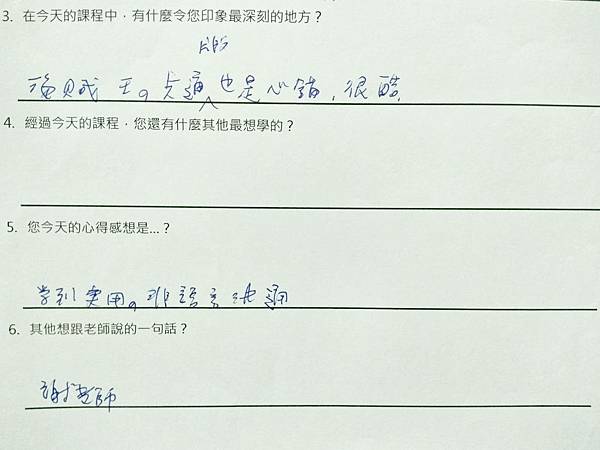 3. 在今天的課程中，有什麼令您印象最深刻的地方？
海賊王の卡通片的也是心錨，很酷
4. 經過今天的課程，您還有什麼其他最想學的？
5. 您今天的心得感想是...？
學到實用の非語言溝通
6. 其他想跟老師說的一句話？
謝老師